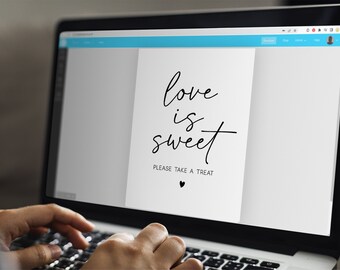 love
is
sweet
PLEASE TAKE A TREAT